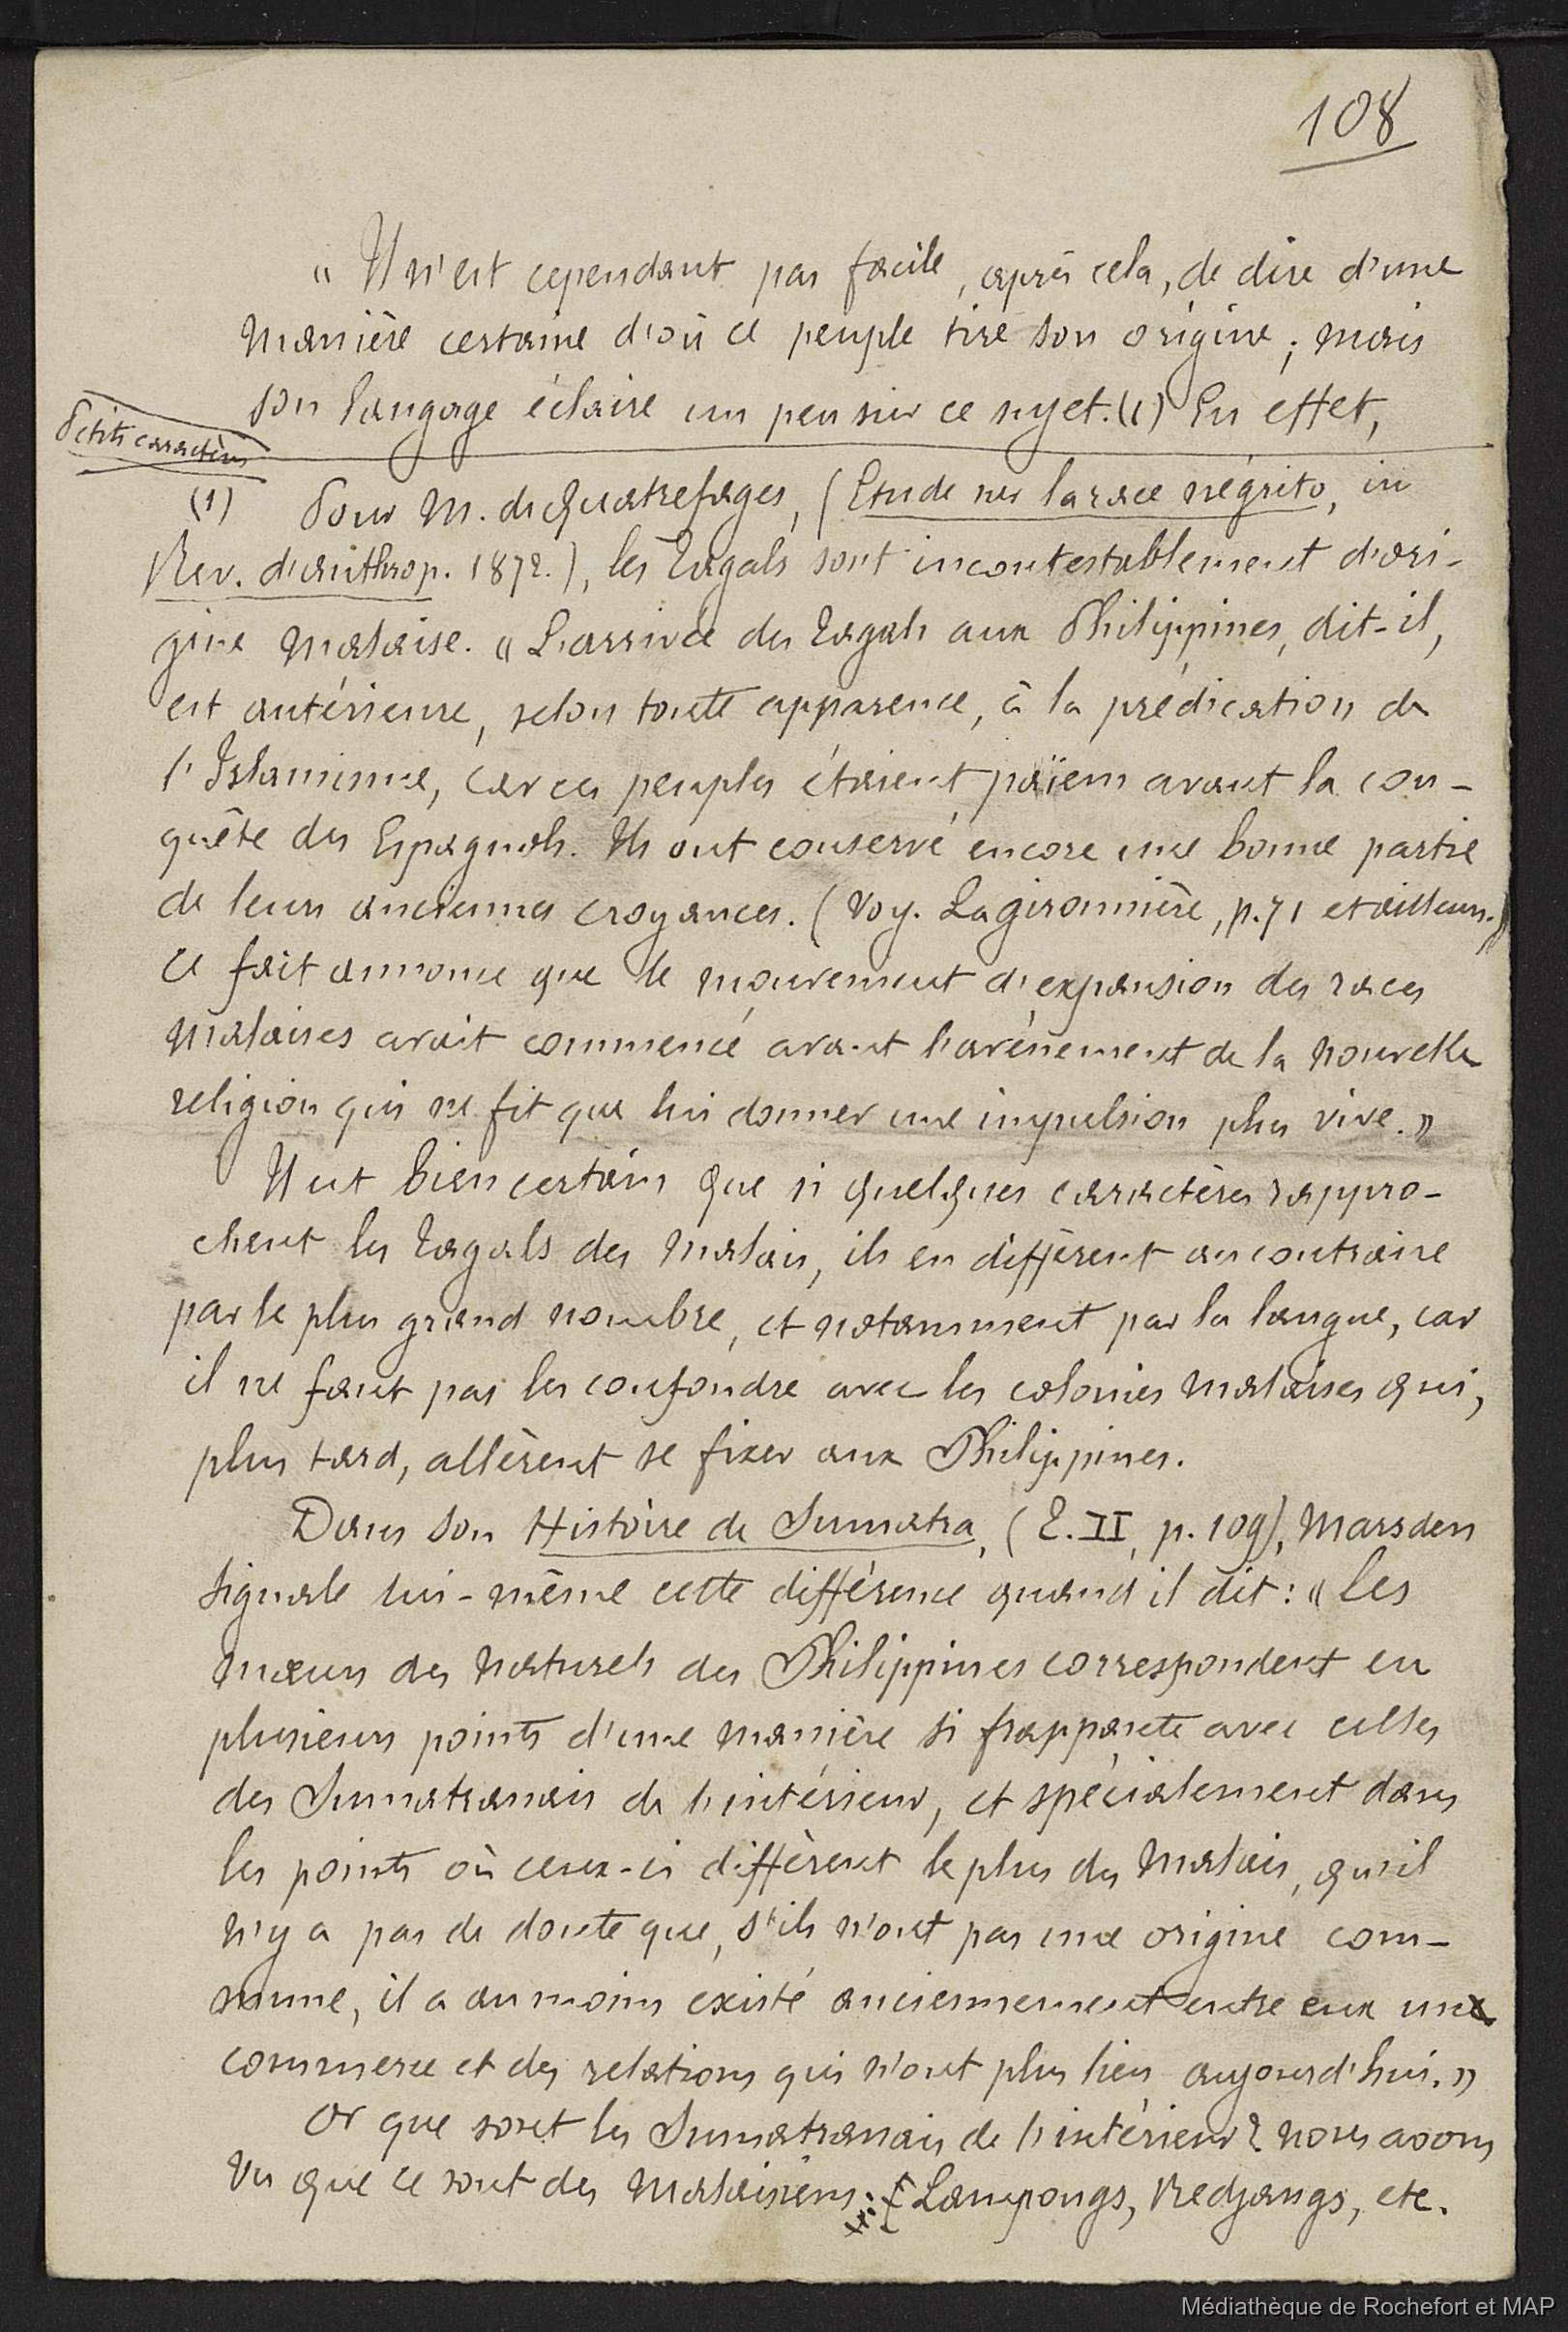 108
« Il n'est cependant pas facile, après cela, de dire d'une
manière certaine d'où ce peuple tire son origine ; mais
son langage éclaire un peu sur ce sujet. (1) En effet,
Petits caractères
(1) Pour M. de Quatrefages, (Etude sur la race négrito, in
Rev. d'anthrop. 1872.), les Tagals sont incontestablement d'ori-
gine malaise. « L'arrivée des Tagals aux Philippines, dit-il,
est antérieure, selon toute apparence, à la prédication de
l'Islamisme, car ces peuples étaient païens avant la con-
quête des Espagnols. Ils ont conservé encore une bonne partie
de leurs anciennes croyances. (Voy. Lagironnière, p. 71 et ailleurs.)
Ce fait annonce que le mouvement d'expansion des races
malaises avait commencé avant l'avènement de la nouvelle
religion qui ne fit que lui donner une impulsion plus vive. »
Il est bien certain que si quelques caractères rappro-
chent les Tagals des Malais, ils en diffèrent au contraire
par le plus grand nombre, et notamment par la langue, car
il ne faut pas les confondre avec les colonies malaises qui,
plus tard, allèrent se fixer aux Philippines.
Dans son Histoire de Sumatra, (T. II, p. 109), Marsden
signale lui-même cette différence quand il dit : « Les
mœurs des naturels des Philippines correspondent en
plusieurs points d'une manière si frappante avec celles
des Sumatranais de l'intérieur, et spécialement dans
les points où ceux-ci diffèrent le plus des Malais, qu'il
n'y a pas de doute que, s'ils n'ont pas une origine com-
mune, il a au moins existé anciennement entre eux un
commerce et des relations qui n'ont plus lieu aujourd'hui. »
Or que sont les Sumatranais de l'intérieur ? nous avons
vu que ce sont des Malaisiens : Lampongs, Redjangs, etc.
Médiathèque de Rochefort et MAP